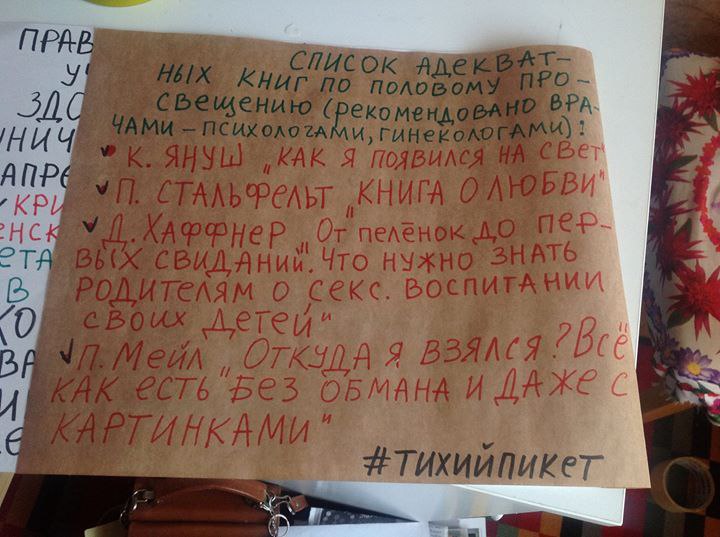 СПИСОК АДЕКВАТ-
НЫХ КНИГ ПО ПОЛОВОМУ ПРО-
СВЕЩЕНИЮ (РЕКОМЕНДОВАНО ВРА-
ЧАМИ - ПСИХОЛОГАМИ, ГИНЕКОЛОГАМИ):
К. ЯНУШ „КАК Я ПОЯВИЛСЯ НА СВЕТ"
П. СТАЛЬФЕЛЬТ „КНИГА О ЛЮБВИ"
Д. ХАФФНЕР „ОТ ПЕЛЁНОК ДО ПЕР-
ВЫХ СВИДАНИЙ. ЧТО НУЖНО ЗНАТЬ
РОДИТЕЛЯМ О СЕКС. ВОСПИТАНИИ
СВОИХ ДЕТЕЙ"
П. МЕЙЛ „ОТКУДА Я ВЗЯЛСЯ? ВСЁ
КАК ЕСТЬ БЕЗ ОБМАНА И ДАЖЕ С
КАРТИНКАМИ"
#ТИХИЙПИКЕТ